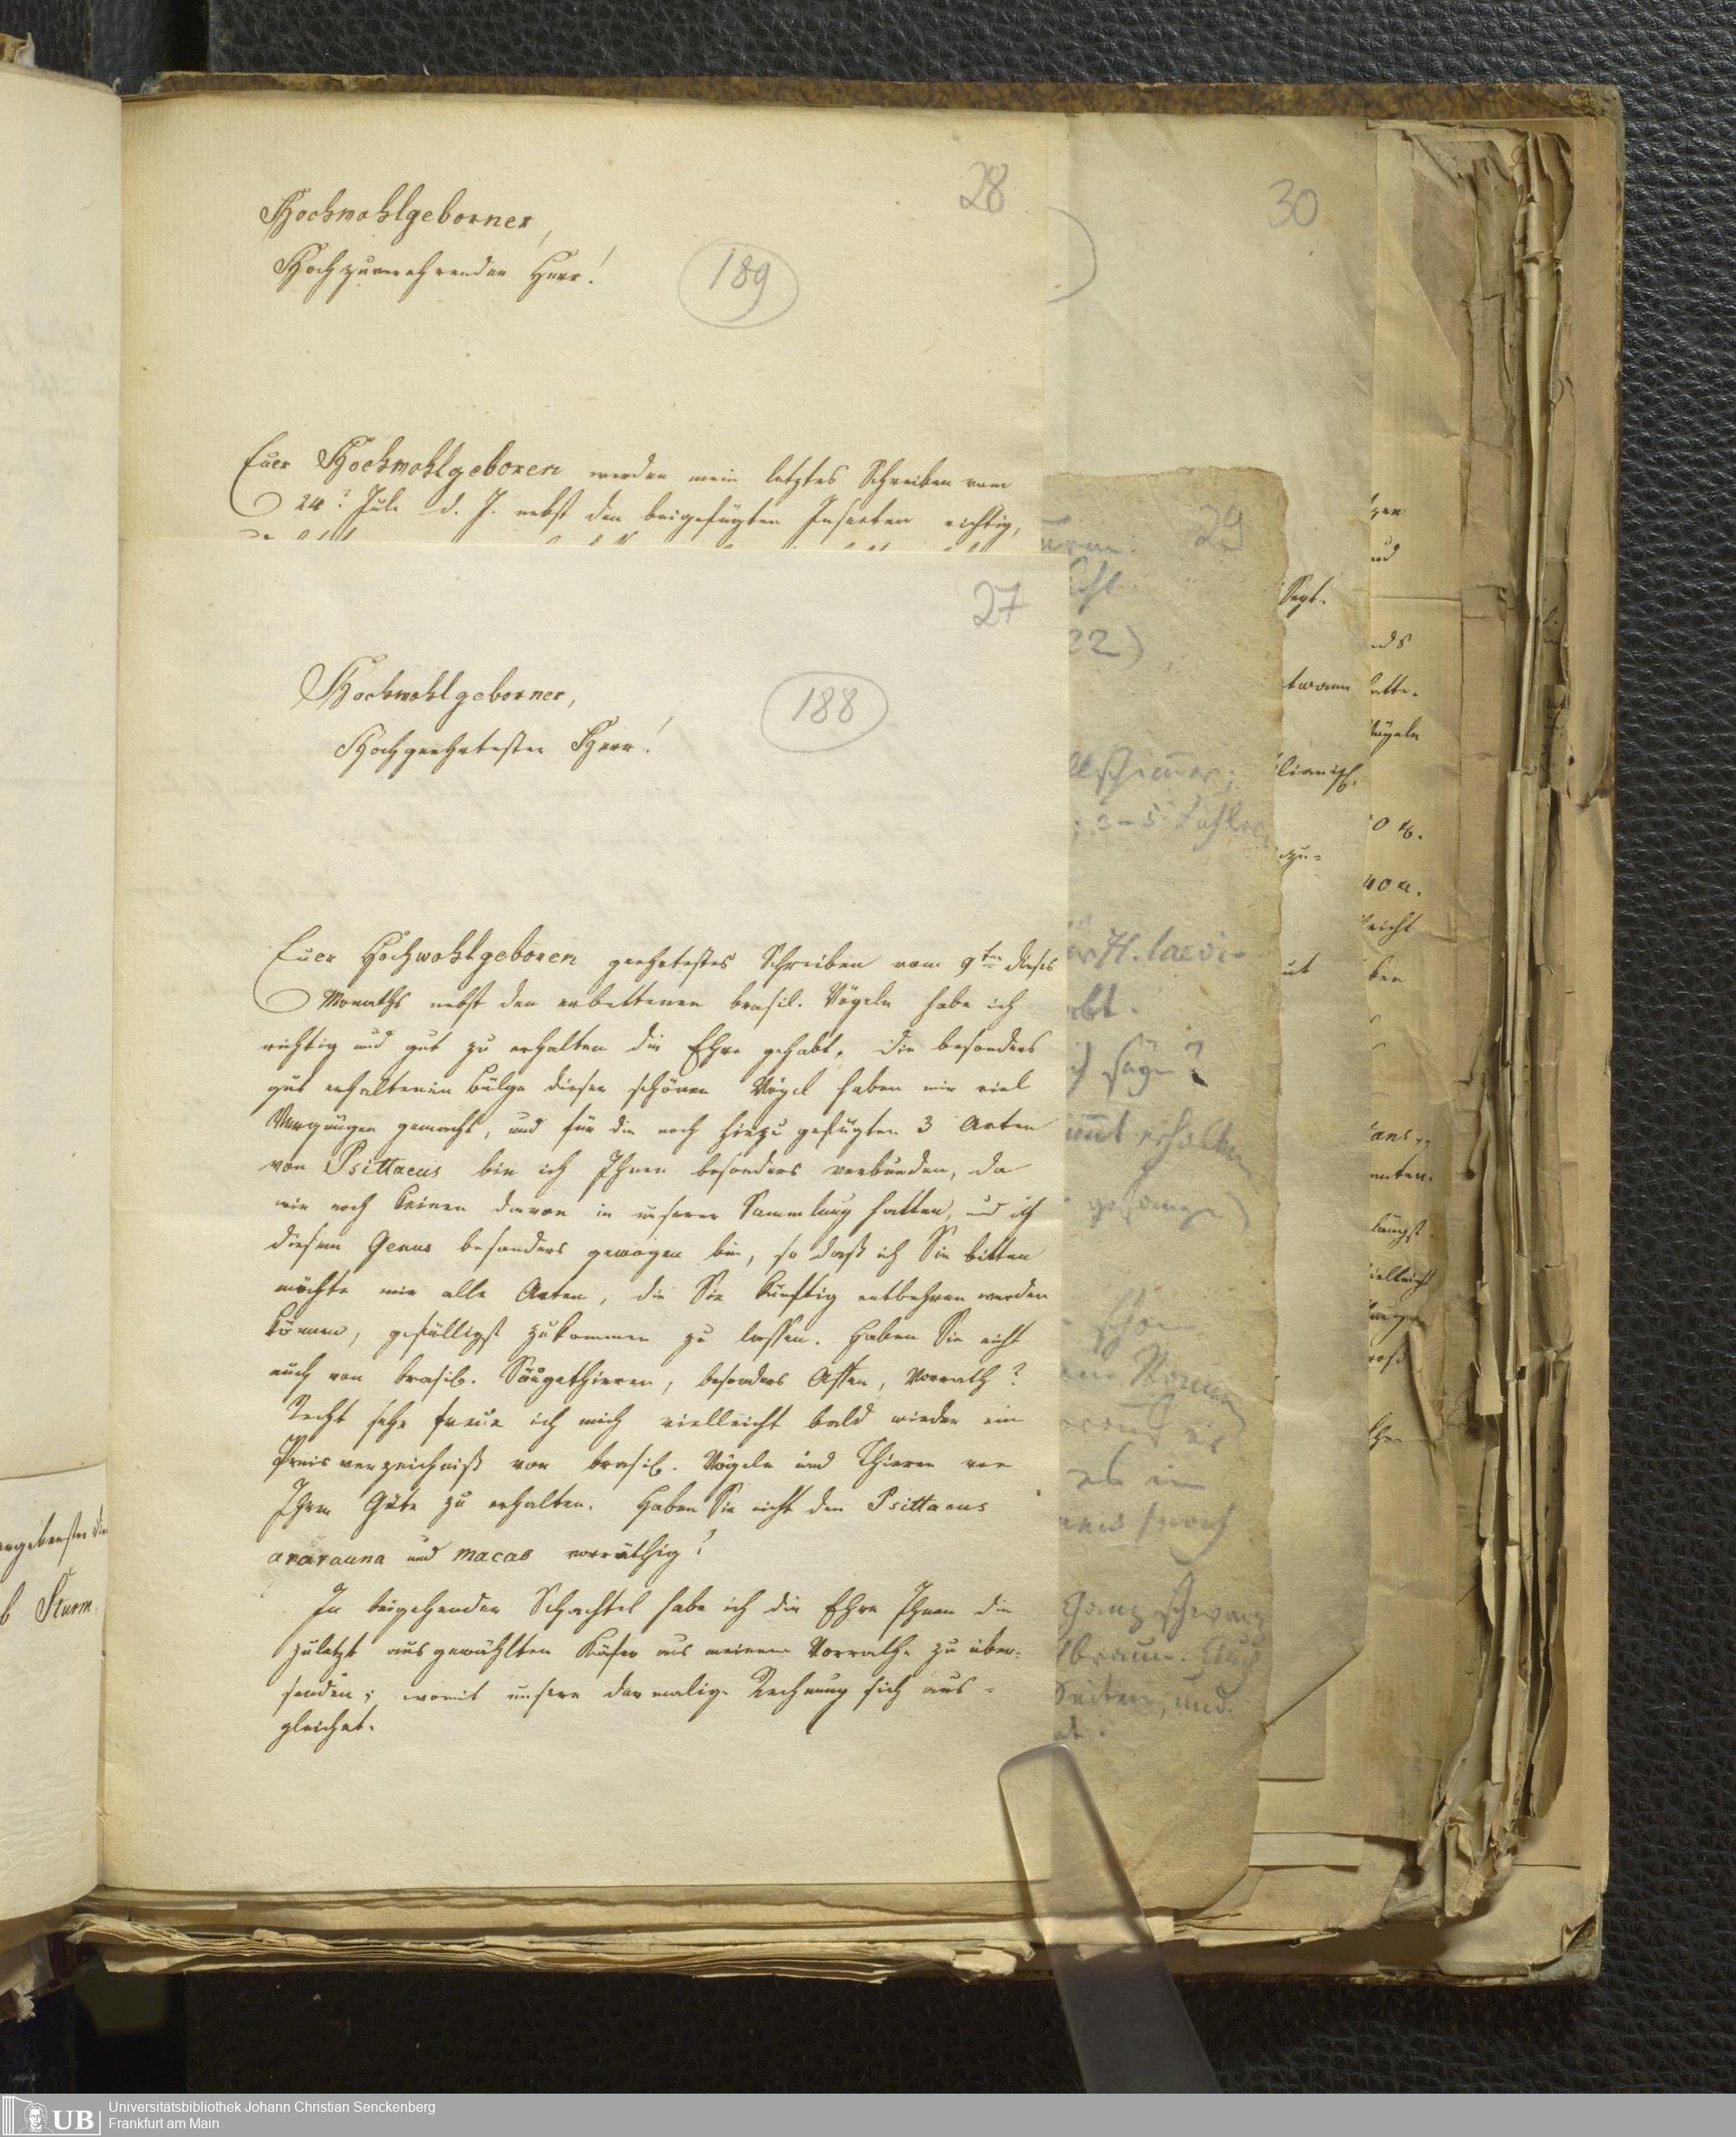 28
Hochwohlgeborner,
Hochzuverehrender Herr!
189
Euer Hochwohlgeboren werden mein letztes Schreiben vom
24. Juli d. J. nebst den beigefügten Insecten richtig,
27
Hochwohlgeborner,
Hochgeehrtester Herr!
188
Euer Hochwohlgeboren geehrtestes Schreiben vom 9ten dieses
Monaths nebst den erbettenen brasil. Vögeln habe ich
richtig und gut zu erhalten die Ehre gehabt, die besonders
gut erhaltenen Bälge dieser schönen Vögel haben mir viel
Vergnügen gemacht, und für die noch hinzu gefügten 3 Arten
von Psittacus bin ich Ihnen besonders verbunden, da
wir noch keinen davon in unserer Sammlung hatten, und ich
diesem Genus besonders gewogen bin, so daß ich Sie bitten
möchte mir alle Arten, die Sie künftig entbehren werden
können, gefälligst zukommen zu lassen. Haben Sie nicht
auch von brasil. Säugethieren, besonders Affen, Vorrath?
Recht sehr freue ich mich vielleicht bald wieder ein
Preisverzeichniß von brasil. Vögeln und Thieren von
Ihrer Güte zu erhalten. Haben Sie nicht den Psittacus
ararauna und macao vorräthig?
In beigehender Schachtel habe ich die Ehre Ihnen die
zuletzt ausgewählten Käfer aus meinem Vorrathe zu über-
senden; womit unsere dermalige Rechnung sich aus-
gleichet.
30
29
22)
3-5
H. laevi-
säge?
erhalten
schon
es im
noch
Ganz schwarz
braun. Auch
Seiten, und
Sept.
vielleicht
Sturm.
UB
Universitätsbibliothek Johann Christian Senckenberg
Frankfurt am Main